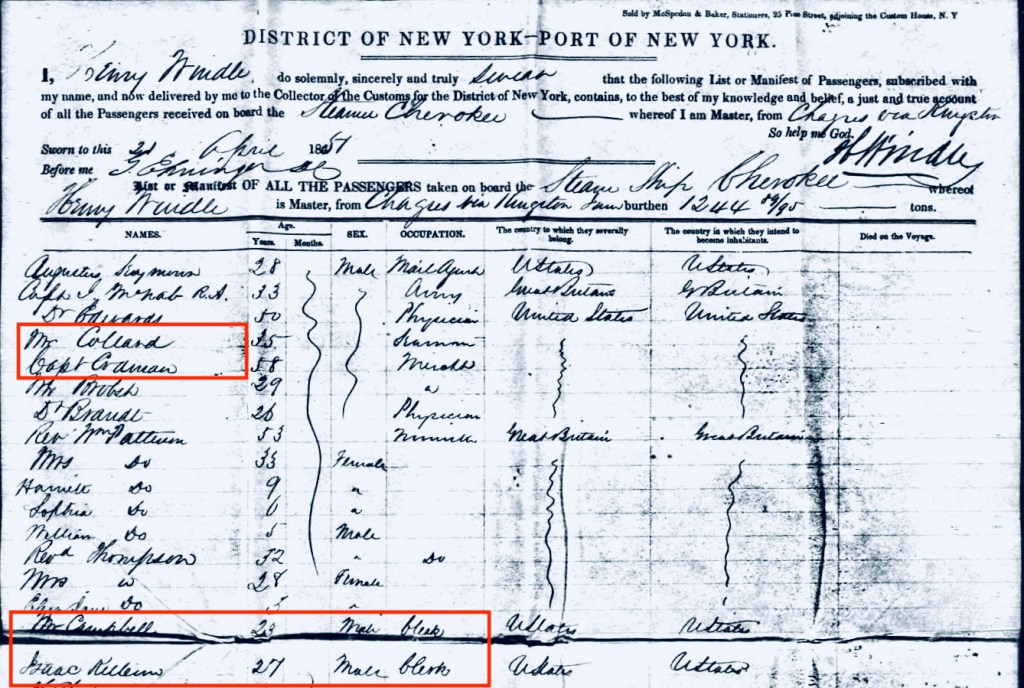 Sold by McSpedon & Baker, Stationers, 25 Pine Street, adjoining the Custom House, N. Y
DISTRICT OF NEW YORK—PORT OF NEW YORK.
I, Henry Windle, do solemnly, sincerely and truly swear that the following List or Manifest of Passengers, subscribed with
my name, and now delivered by me to the Collector of the Customs for the District of New York, contains, to the best of my knowledge and belief, a just and true account
of all the Passengers received on board the Steamer Cherokee whereof I am Master, from Chagres via Kingston
So help me God.
Sworn to this 2d April 1851 H Windle
Before me
List or Manifest OF ALL THE PASSENGERS taken on board the Steam Ship Cherokee whereof
Henry Windle is Master, from Chagres via Kingston Jam burthen 1244 89/95 tons.
NAMES. Age. Years. Months. SEX. OCCUPATION. The country to which they severally belong. The country in which they intend to become inhabitants. Died on the Voyage.
Augustus Seymour 28 Male Mail Agent UStates UStates
Capt J. McNab R.A. 33 Army Great Britain G Britain
Dr Edwards 50 Physician United States United States
Mr Collard 35
Capt Codman 58 Mercht
Mr 29 "
Dr Brandt 26 Physician
Revd Wm Patterson 53 Great Britain Great Britain
Mrs Do 35 Female
Harriett Do 9 "
Sophia Do 6 "
William Do 5 Male
Revd Thompson 32 " Do
Mrs Do 28 Female
Do
Mr Campbell 23 Male Clerk UStates UStates
Isaac 27 Male Clerk UStates UStates